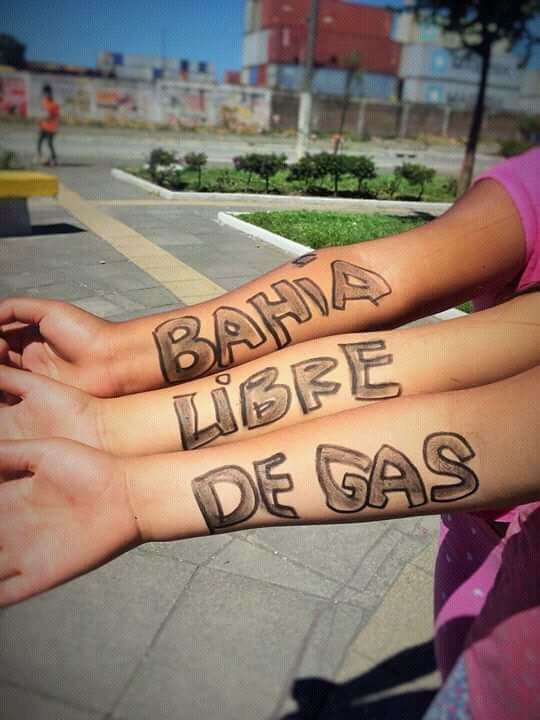 BAHÍA
LIBRE
DE GAS